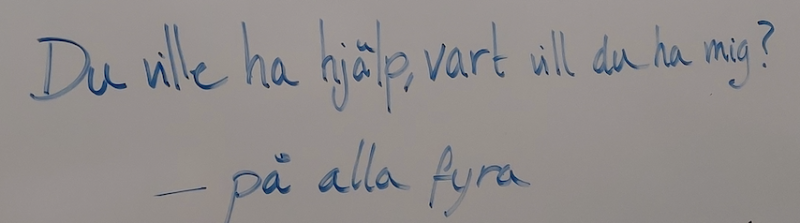 Du ville ha hjälp, vart vill du ha mig?
– på alla fyra